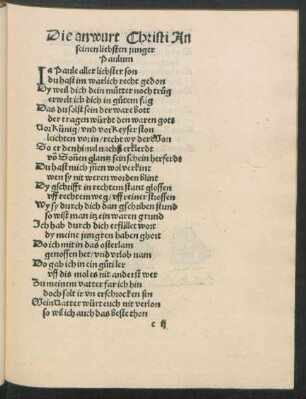 Die anwurt Christi An
seinen liebsten junger
Paulum
Ia Paule aller liebster son
du hast im warlich recht gedon
Dy weil dich dein mütter noch trüg
erwelt ich dich in gütem fůg
Das du solst sein der ware bott
der tragen würdt den waren gots
vor Künig / vnd vor keyser ston
leichten vor in / recht wy der Mon
So er den himel nachs erklerdt
vō Soñen glantz sein schein herferdt
Du hast mich
wen sy nit weren worden blint
Dy gschrifft in rechtem stant glossen
vff rechtem weg / vff reiner stossen
Wy sy durch dich dan gschehen stund
so wist man itz ein waren grund
Ich hab durch dich erfüllet wort
dy meine jungren haben ghort
Do ich mit in das osterlam
genossen het / vnd vrlob nam
Do gab ich in ein güti ler
vff dis moles nit anderst wer
Zu meinem vatter far ich hin
doch solt ir vn erschrocken sin
Mein vatter würt euch nit verlon
so wil ich auch das beste thon
c ij